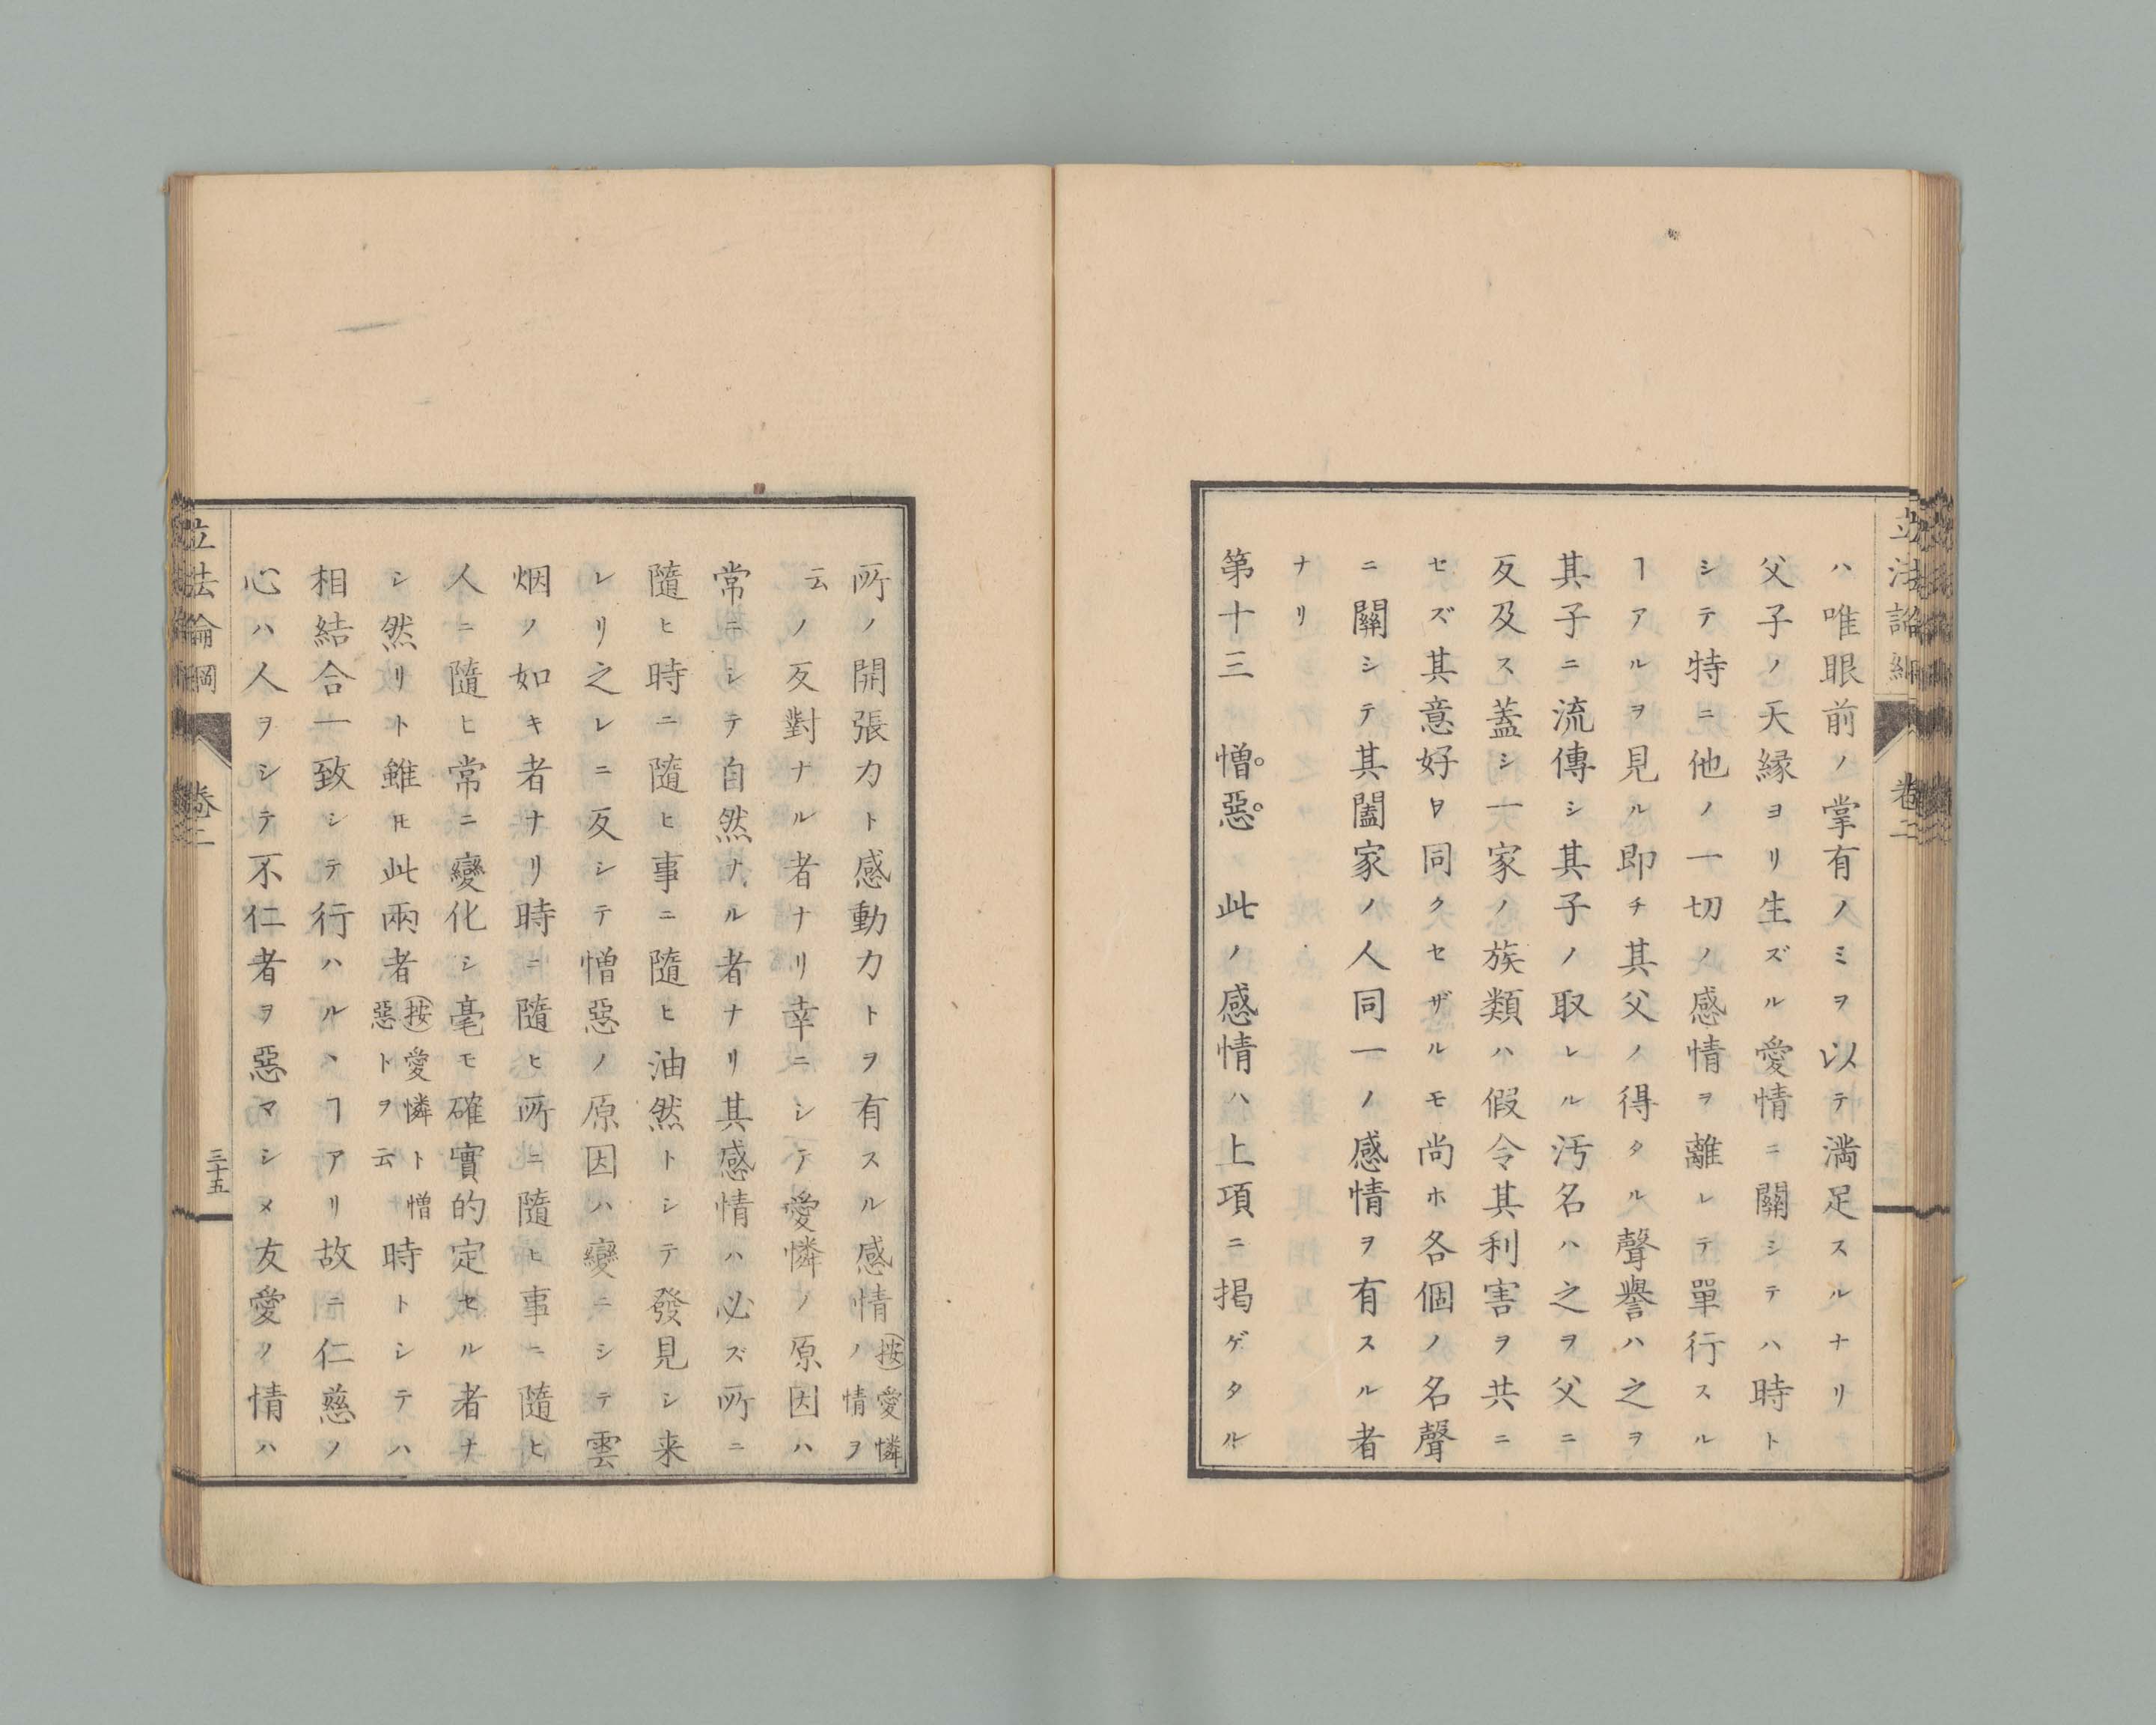 立法論綱 卷二
ハ唯眼前ノ掌有ノミヲ以テ滿足スルナリ
父子ノ天縁ヨリ生ズル愛情ニ關シテハ時ト
シテ特ニ他ノ一切ノ感情ヲ離レテ單行スル
ヿアルヲ見ル即チ其父ノ得タル聲譽ハ之ヲ
其子ニ流傳シ其子ノ取レル汚名ハ之ヲ父ニ
反及ス蓋シ一家ノ族類ハ假令其利害ヲ共ニ
セズ其意好ヲ同クセザルモ尚ホ各個ノ名聲
ニ關シテ其闔家ノ人同一ノ感情ヲ有スル者
ナリ
第十三 憎惡 此ノ感情ハ上項ニ掲ゲタル
所ノ開張力ト感動力トヲ有スル感情ノ(按)愛憐情ヲ
云ノ反對ナル者ナリ幸ニシテ愛憐ノ原因ハ
常ニシテ自然ナル者ナリ其感情ハ必ズ所ニ
隨ヒ時ニ隨ヒ事ニ隨ヒ油然トシテ發見シ来
レリ之レニ反シテ憎惡ノ原因ハ變ニシテ雲
烟ノ如キ者ナリ時ニ隨ヒ所ニ隨ヒ事ニ隨ヒ
人ニ隨ヒ常ニ變化シ毫モ確實的定セル者ナ
シ然リト雖𪜈此兩者(按)愛憐ト憎惡トヲ云時トシテハ
相結合一致シテ行ハルヽヿアリ故ニ仁慈ノ
心ハ人ヲシテ不仁者ヲ惡マシメ友愛ノ情ハ
立法論綱 卷二 三十五